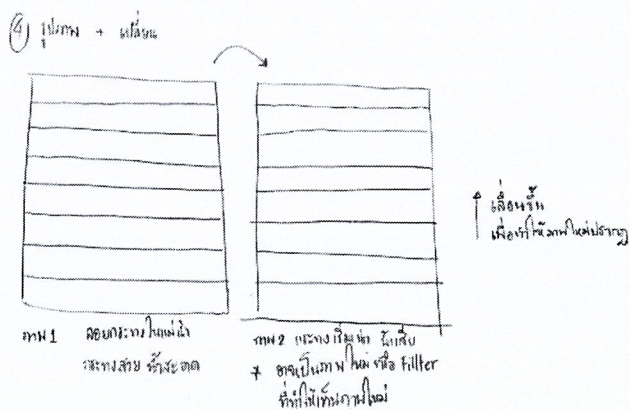 ④ รูปภาพ → เปลี่ยน
↑ เลื่อนขึ้น
เพื่อทำให้ภาพใหม่ปรากฏ
ภาพ 1 ลอยกระทงในแม่น้ำ
กระทงสวย น้ำสะอาด
ภาพ 2 กระทงเริ่มเน่า น้ำเสีย
* อาจเป็นภาพใหม่ หรือ Fillter
ที่ทำให้เห็นภาพใหม่